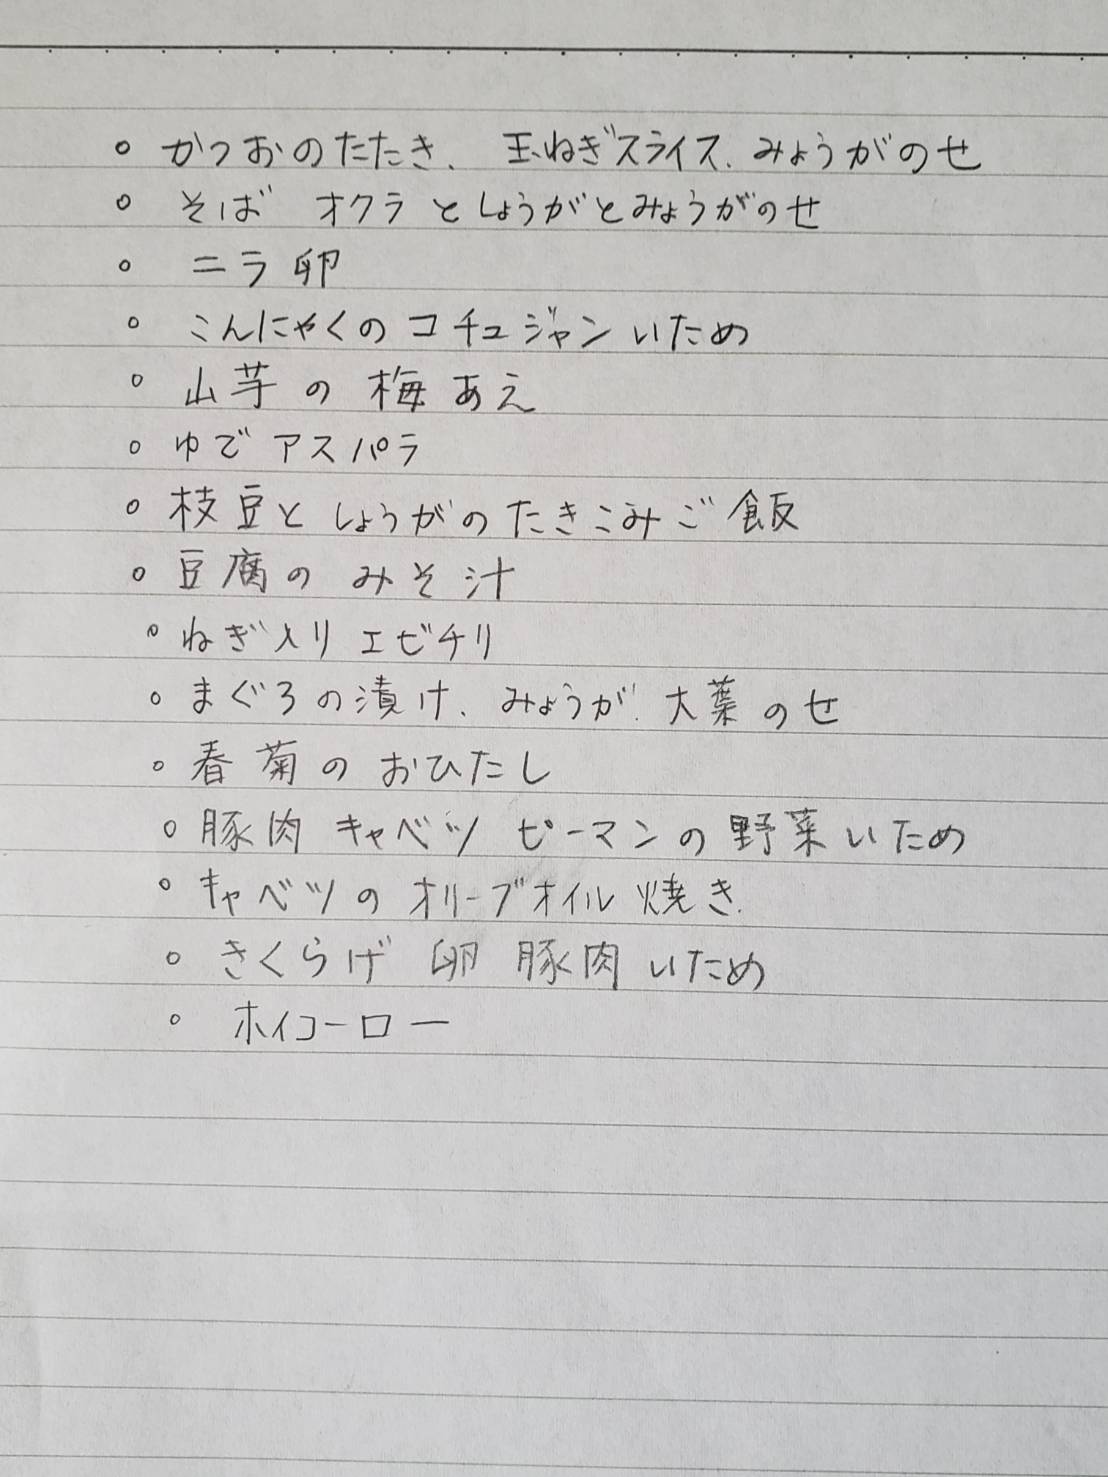 ○ かつおのたたき、玉ねぎスライス、みょうがのせ
○ そば オクラとしょうがとみょうがのせ
○ ニラ卵
○ こんにゃくのコチュジャンいため
○ 山芋の梅あえ
○ ゆでアスパラ
○ 枝豆としょうがのたきこみご飯
○ 豆腐のみそ汁
○ ねぎ入りエビチリ
○ まぐろの漬け、みょうが、大葉のせ
○ 春菊のおひたし
○ 豚肉 キャベツ ピーマンの野菜いため
○ キャベツのオリーブオイル焼き
○ きくらげ 卵 豚肉いため
○ ホイコーロー